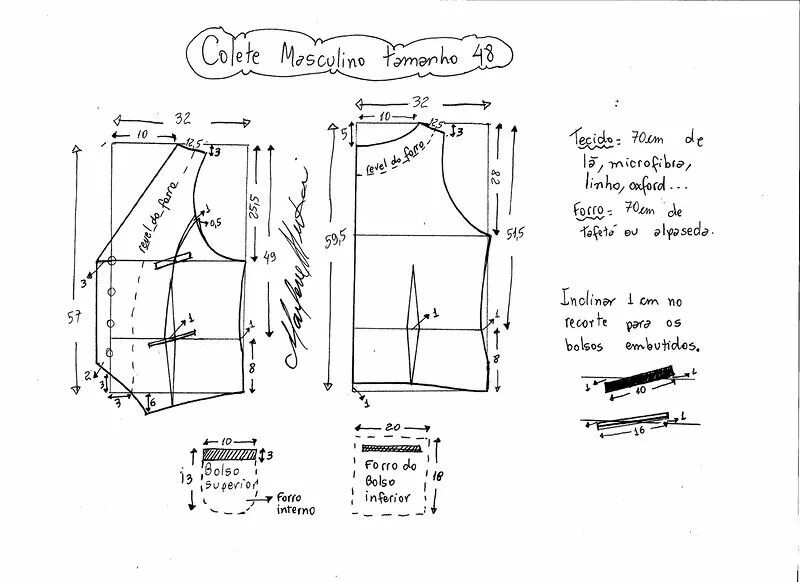 Colete Masculino tamanho 48
32
10
12,5
3
revel do forro
25,5
1
0,5
49
57
3
1
1
8
2
3
3
6
32
10
12,5
3
5
revel do forro
28
59,5
51,5
1
1
8
1
Tecido= 70cm de
lã, microfibra,
linho, oxford...
Forro= 70cm de
tafetá ou alpaseda.
Inclinar 1 cm no
recorte para os
bolsos embutidos.
1
1
10
1
1
16
10
3
13
Bolso
superior
Forro
interno
20
Forro do
Bolso
inferior
18